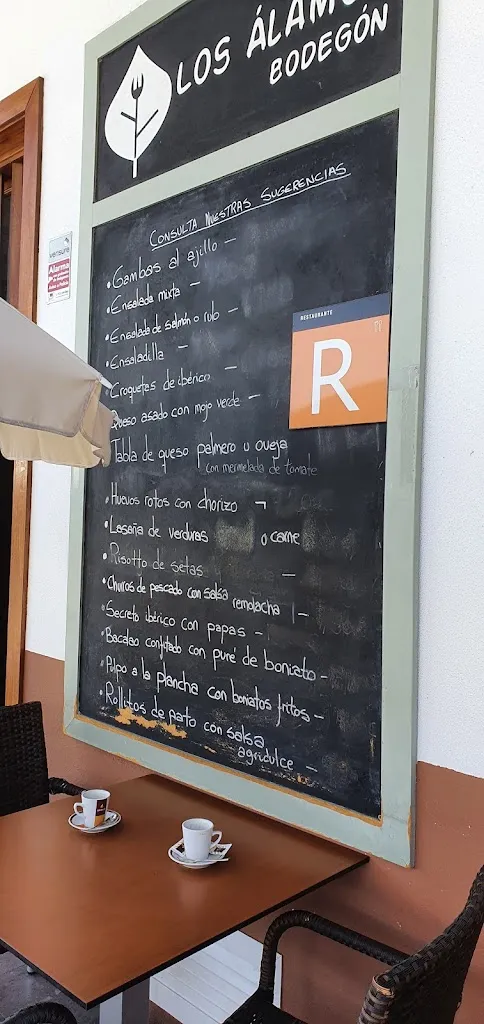 LOS ÁLAMO
BODEGÓN
CONSULTA NUESTRAS SUGERENCIAS
• Gambas al ajillo –
• Ensalada mixta –
• Ensalada de salmón o rulo –
• Ensaladilla –
• Croquetas de ibérico –
Queso asado con mojo verde –
Tabla de queso palmero u oveja
con mermelada de tomate
• Huevos rotos con chorizo ¬
• Lasaña de verduras o carne
• Risotto de setas –
• Churros de pescado con salsa remolacha | –
• Secreto ibérico con papas –
• Bacalao confitado con puré de boniato –
• Pulpo a la plancha con boniatos fritos –
• Rollitos de pato con salsa
agridulce –
RESTAURANTE
TV
R
verisure
Alarma